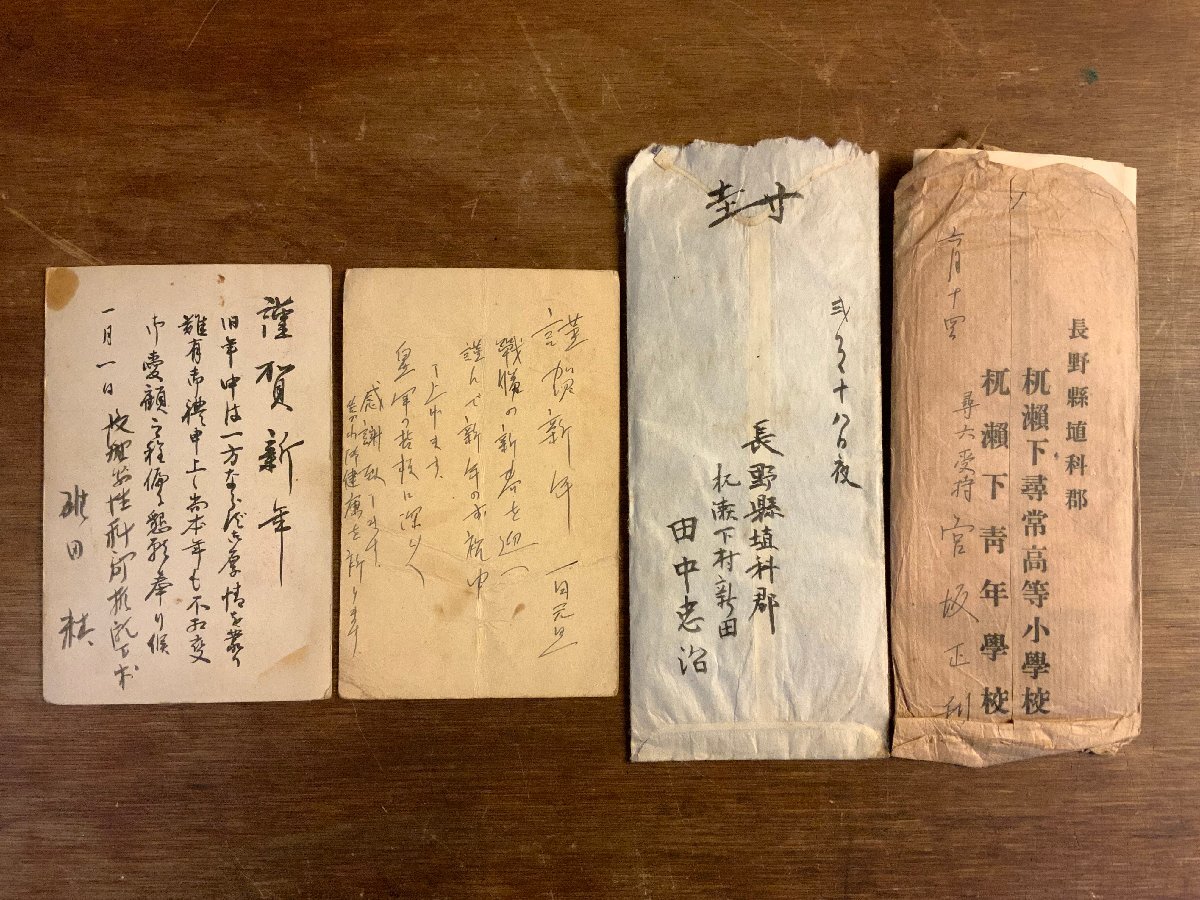 謹賀新年
旧年中は一方ならず御厚情を蒙り
難有御礼申上候尚本年も不相変
御愛顧之程偏に懇願奉り候
一月一日
謹賀新年 一月元旦
戦勝の新春を迎へ
謹んで新年の御祝申
し上げます
皇軍の皆様に深く
感謝致します
健康を祈ります
封
弐月十八日夜
長野縣埴科郡
杭瀬下村新田
田中忠治
長野縣埴科郡
杭瀬下尋常高等小學校
杭瀬下青年學校
尋六受持 宮坂正
六月十四